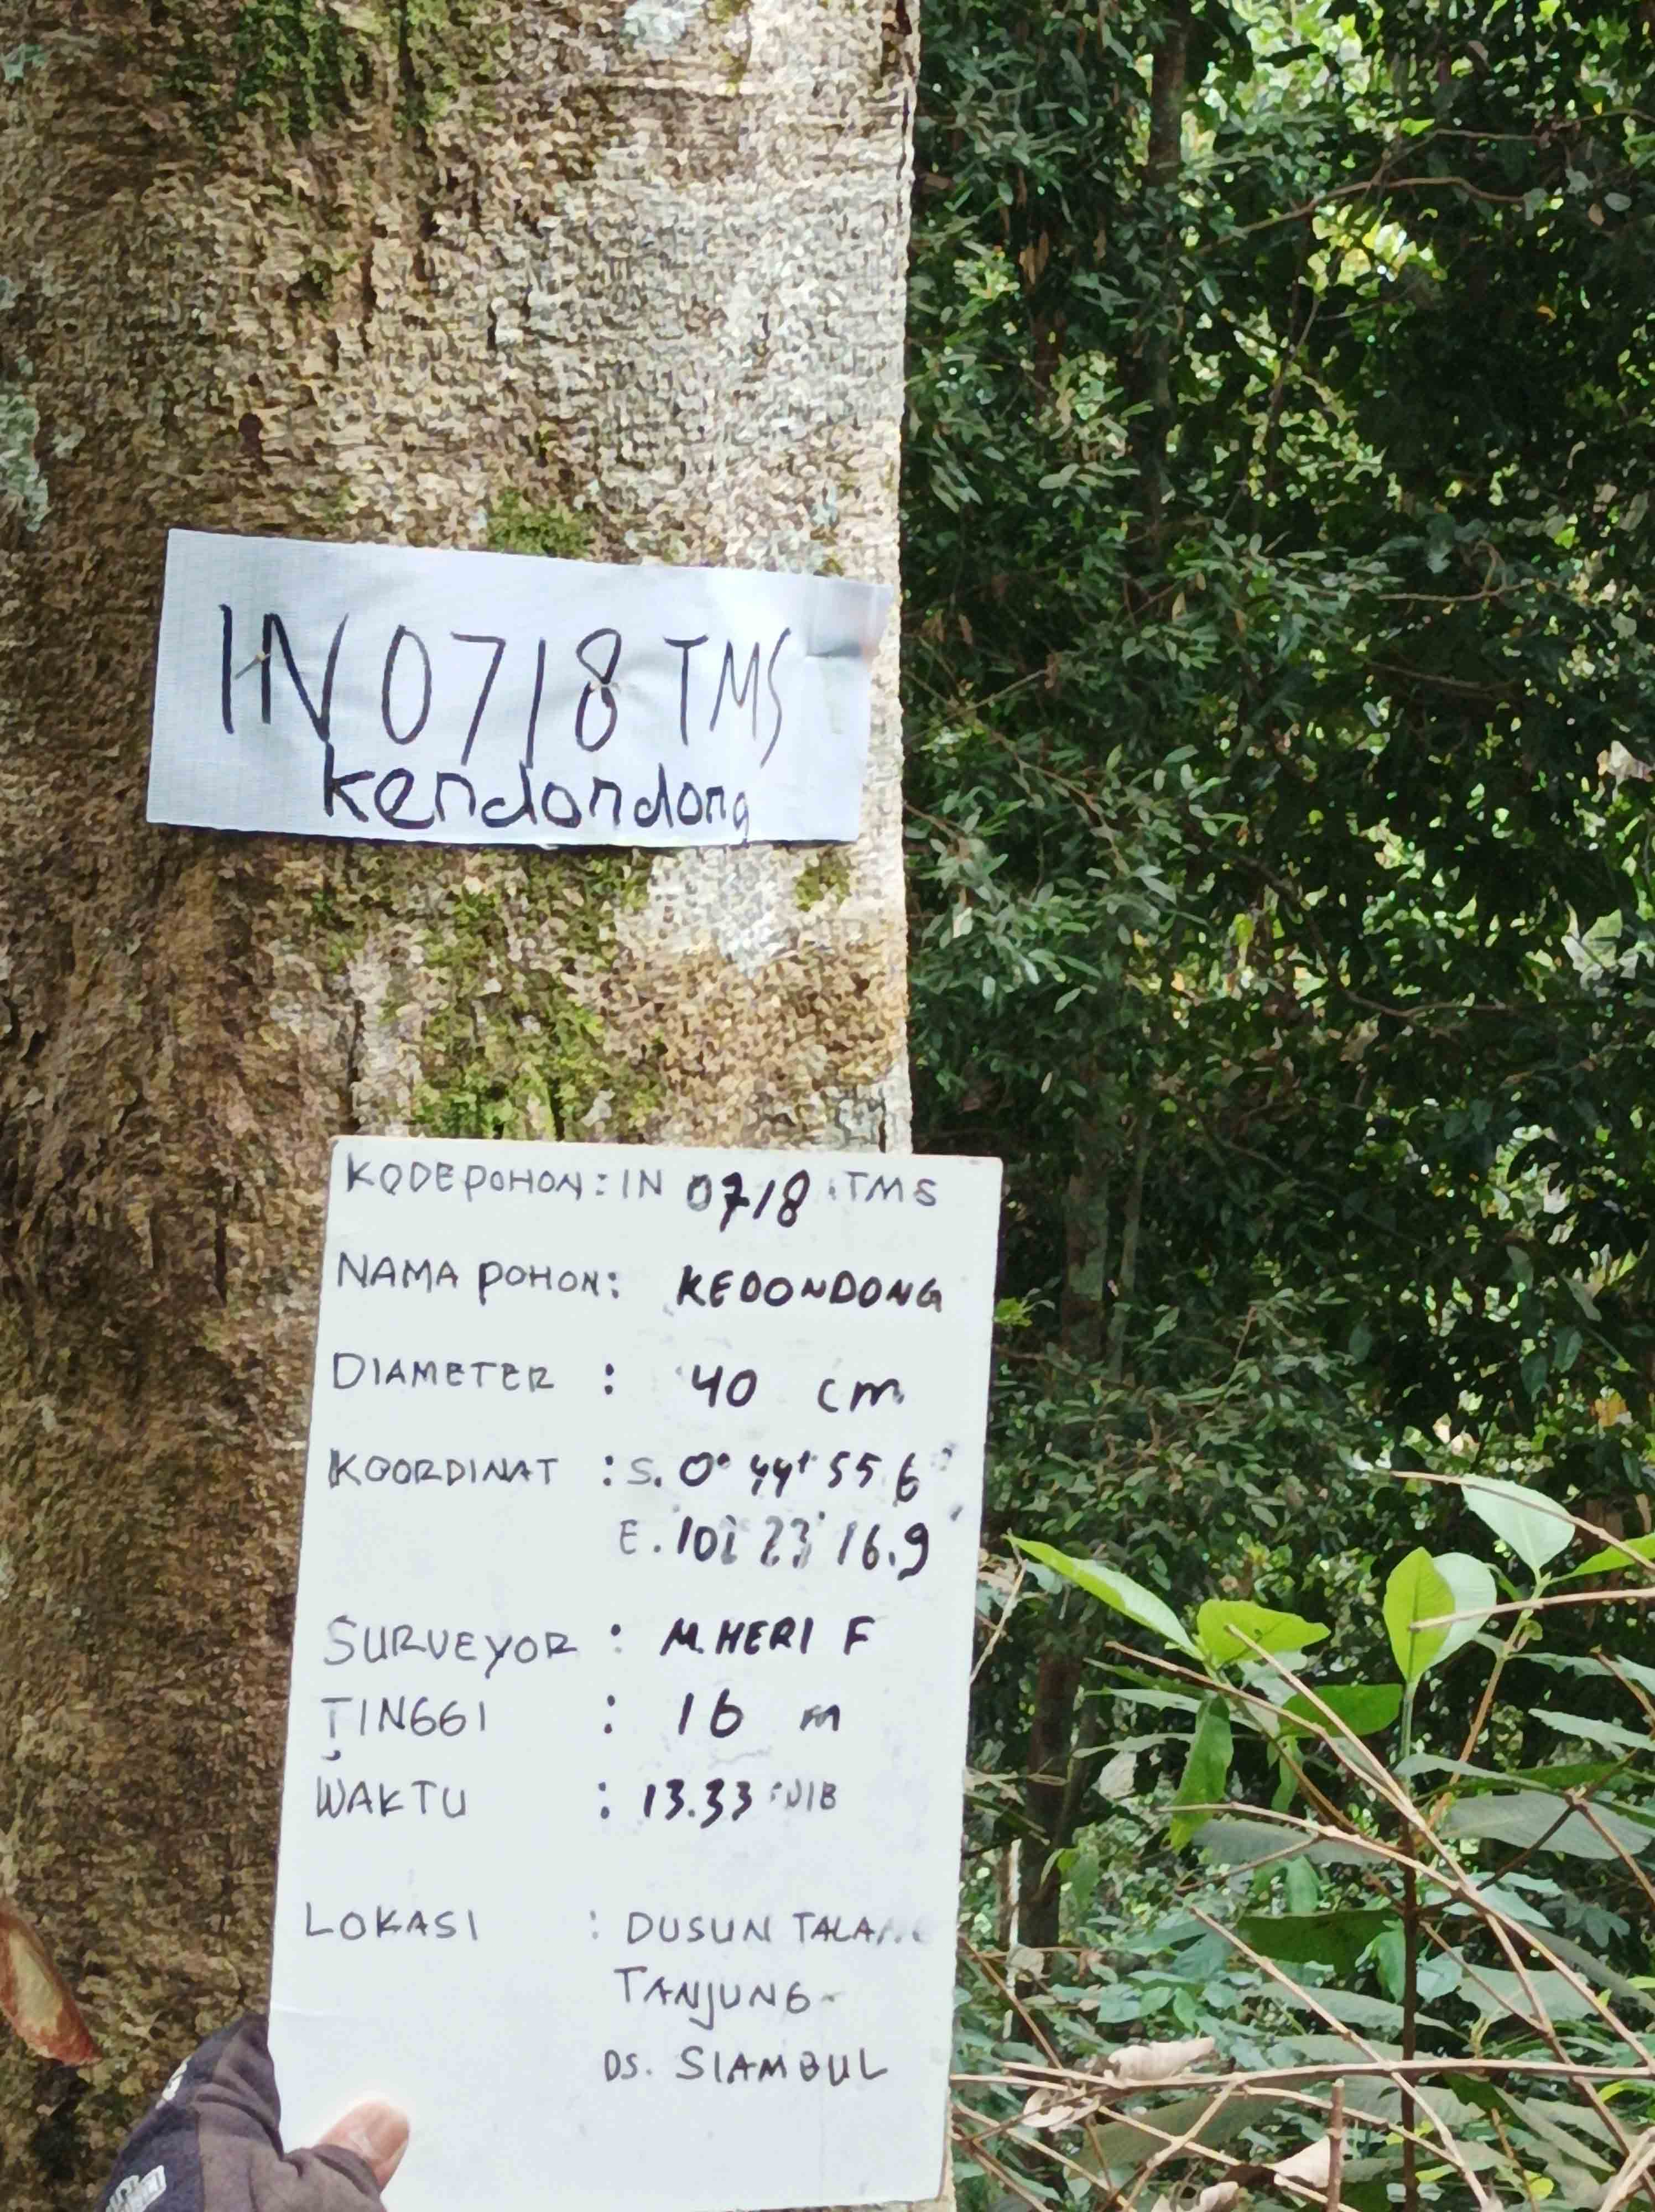 IN 0718 TMS
kendondong
KODE POHON : IN 0718 TMS
NAMA POHON : KEDONDONG
DIAMETER : 40 cm
KOORDINAT : S. 0° 44' 55 6"
E. 102 23' 16.9
SURVEYOR : M. HERI F
TINGGI : 16 m
WAKTU : 13.33 WIB
LOKASI : DUSUN TALANG
TANJUNG
DS. SIAMBUL